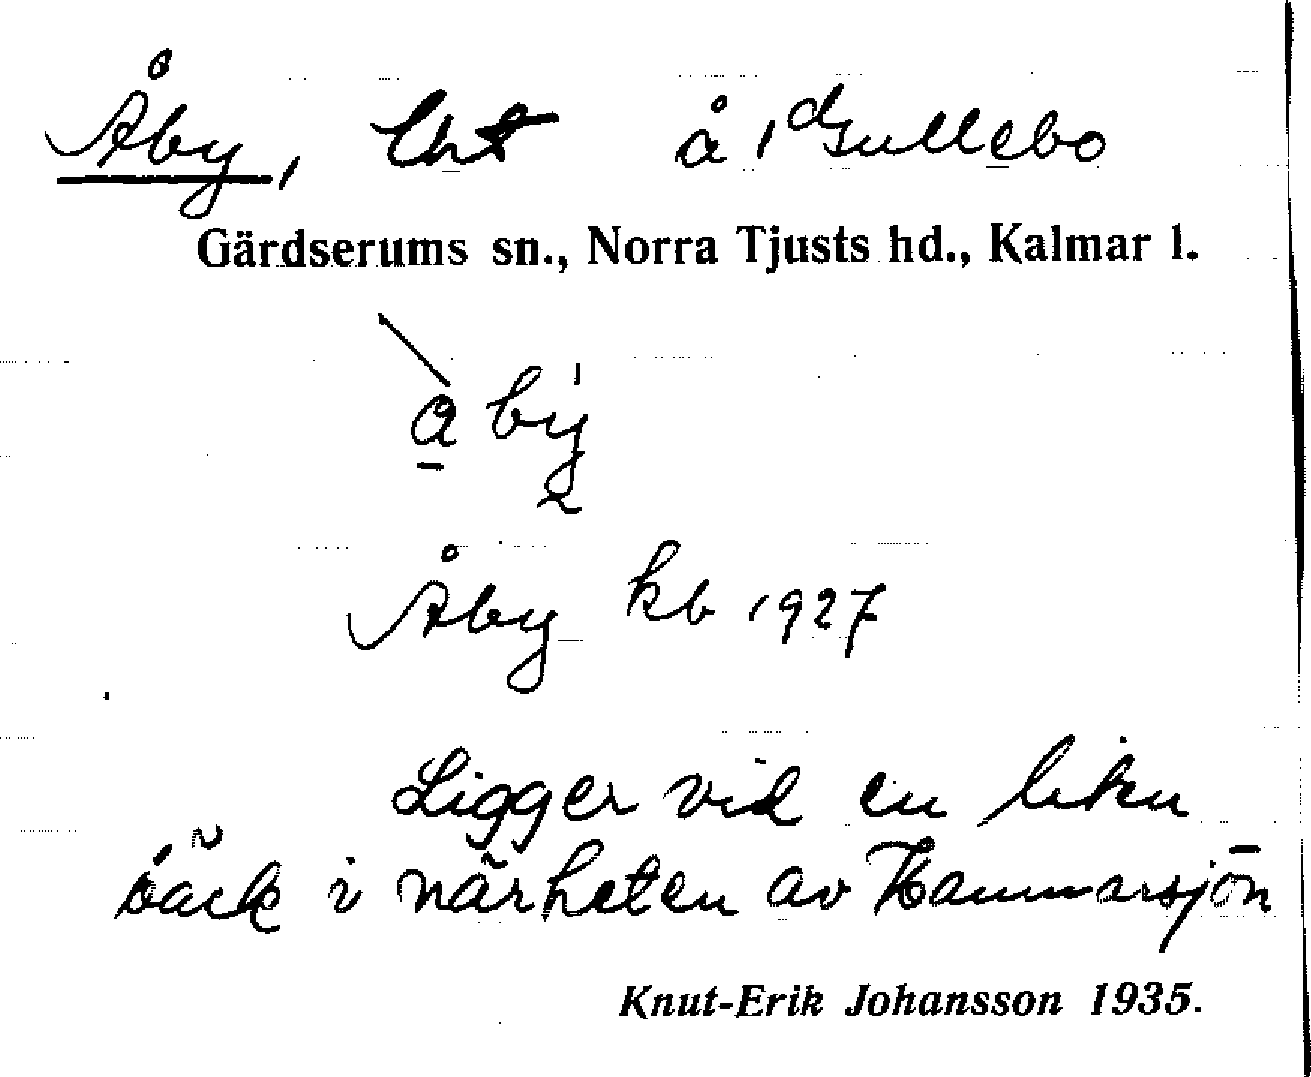 Åby, lht å 1 d Gullebo
Gärdserums sn., Norra Tjusts hd., Kalmar l.
a̲ bý
Åby kb 1927
Ligger vid en liten
bäck i närheten av Hammarsjön
Knut-Erik Johansson 1935.